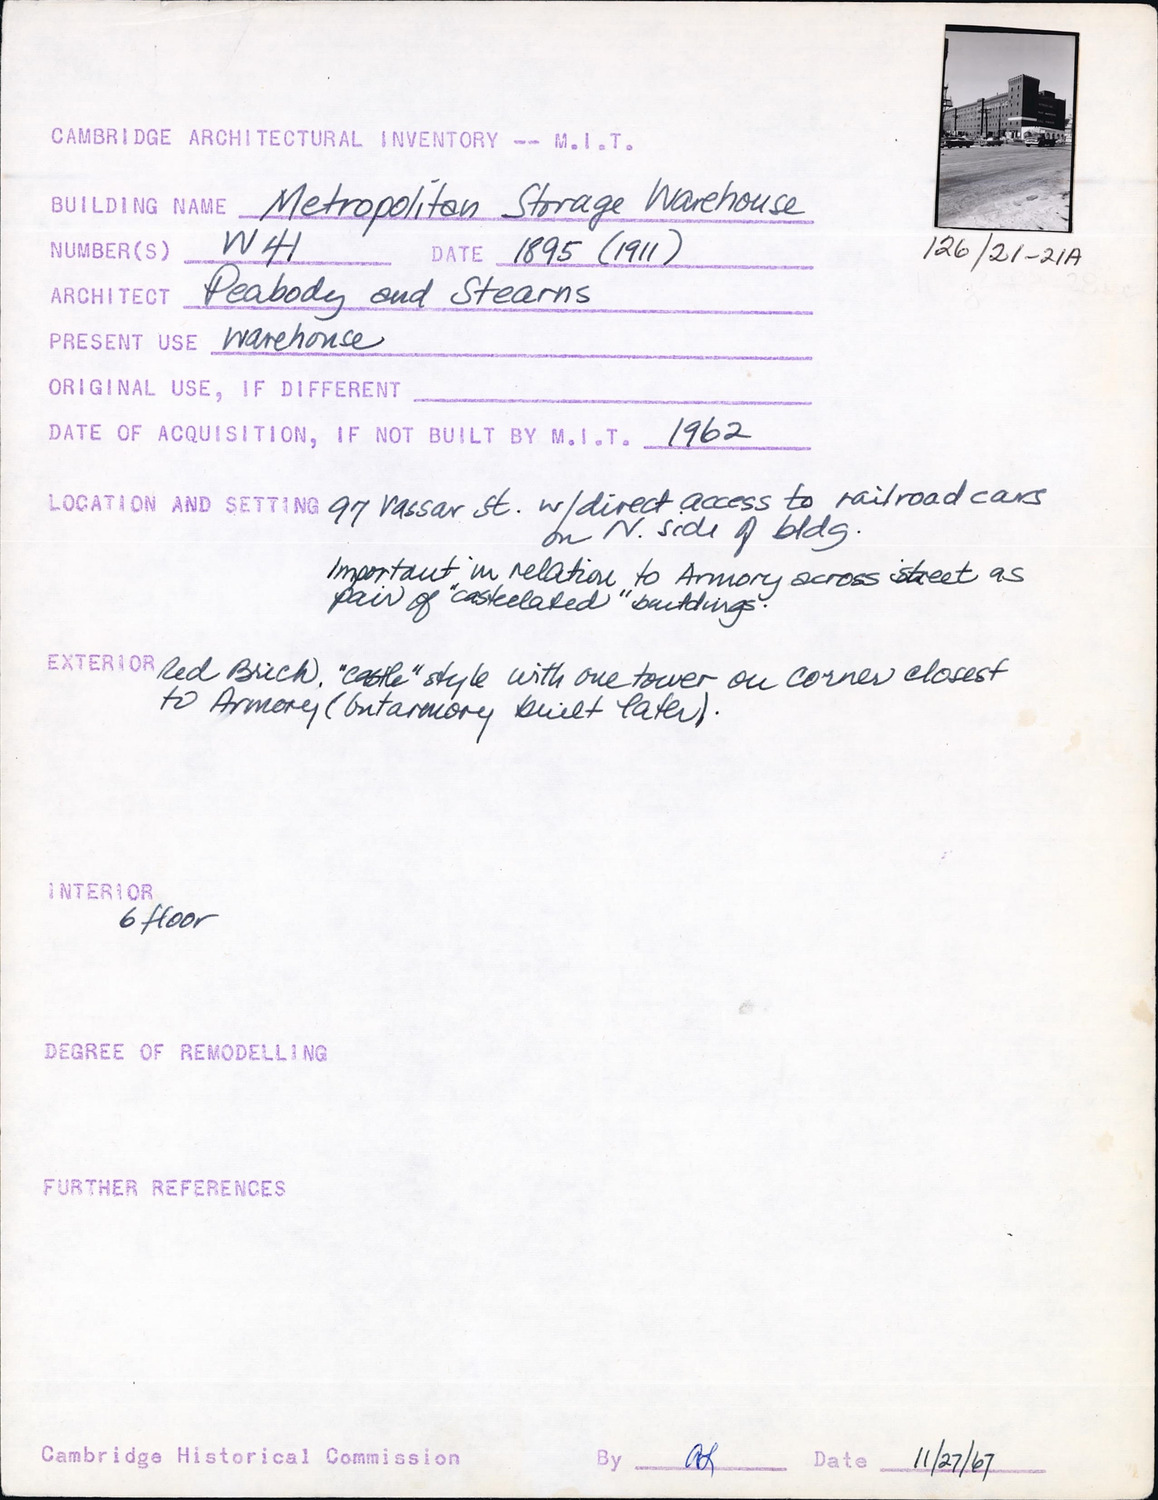 CAMBRIDGE ARCHITECTURAL INVENTORY -- M.I.T.
126/21-21A
BUILDING NAME Metropolitan Storage Warehouse
NUMBER(S) W41 DATE 1895 (1911)
ARCHITECT Peabody and Stearns
PRESENT USE Warehouse
ORIGINAL USE, IF DIFFERENT
DATE OF ACQUISITION, IF NOT BUILT BY M.I.T. 1962
LOCATION AND SETTING 97 Vassar St. w/direct access to railroad cars
on N. side of bldg.
Important in relation to Armory across street as
pair of "castellated" buildings.
EXTERIOR Red Brick, "castle" style with one tower on corner closest
to Armory (but armory built later).
INTERIOR
6 floor
DEGREE OF REMODELLING
FURTHER REFERENCES
Cambridge Historical Commission By Date 11/27/67